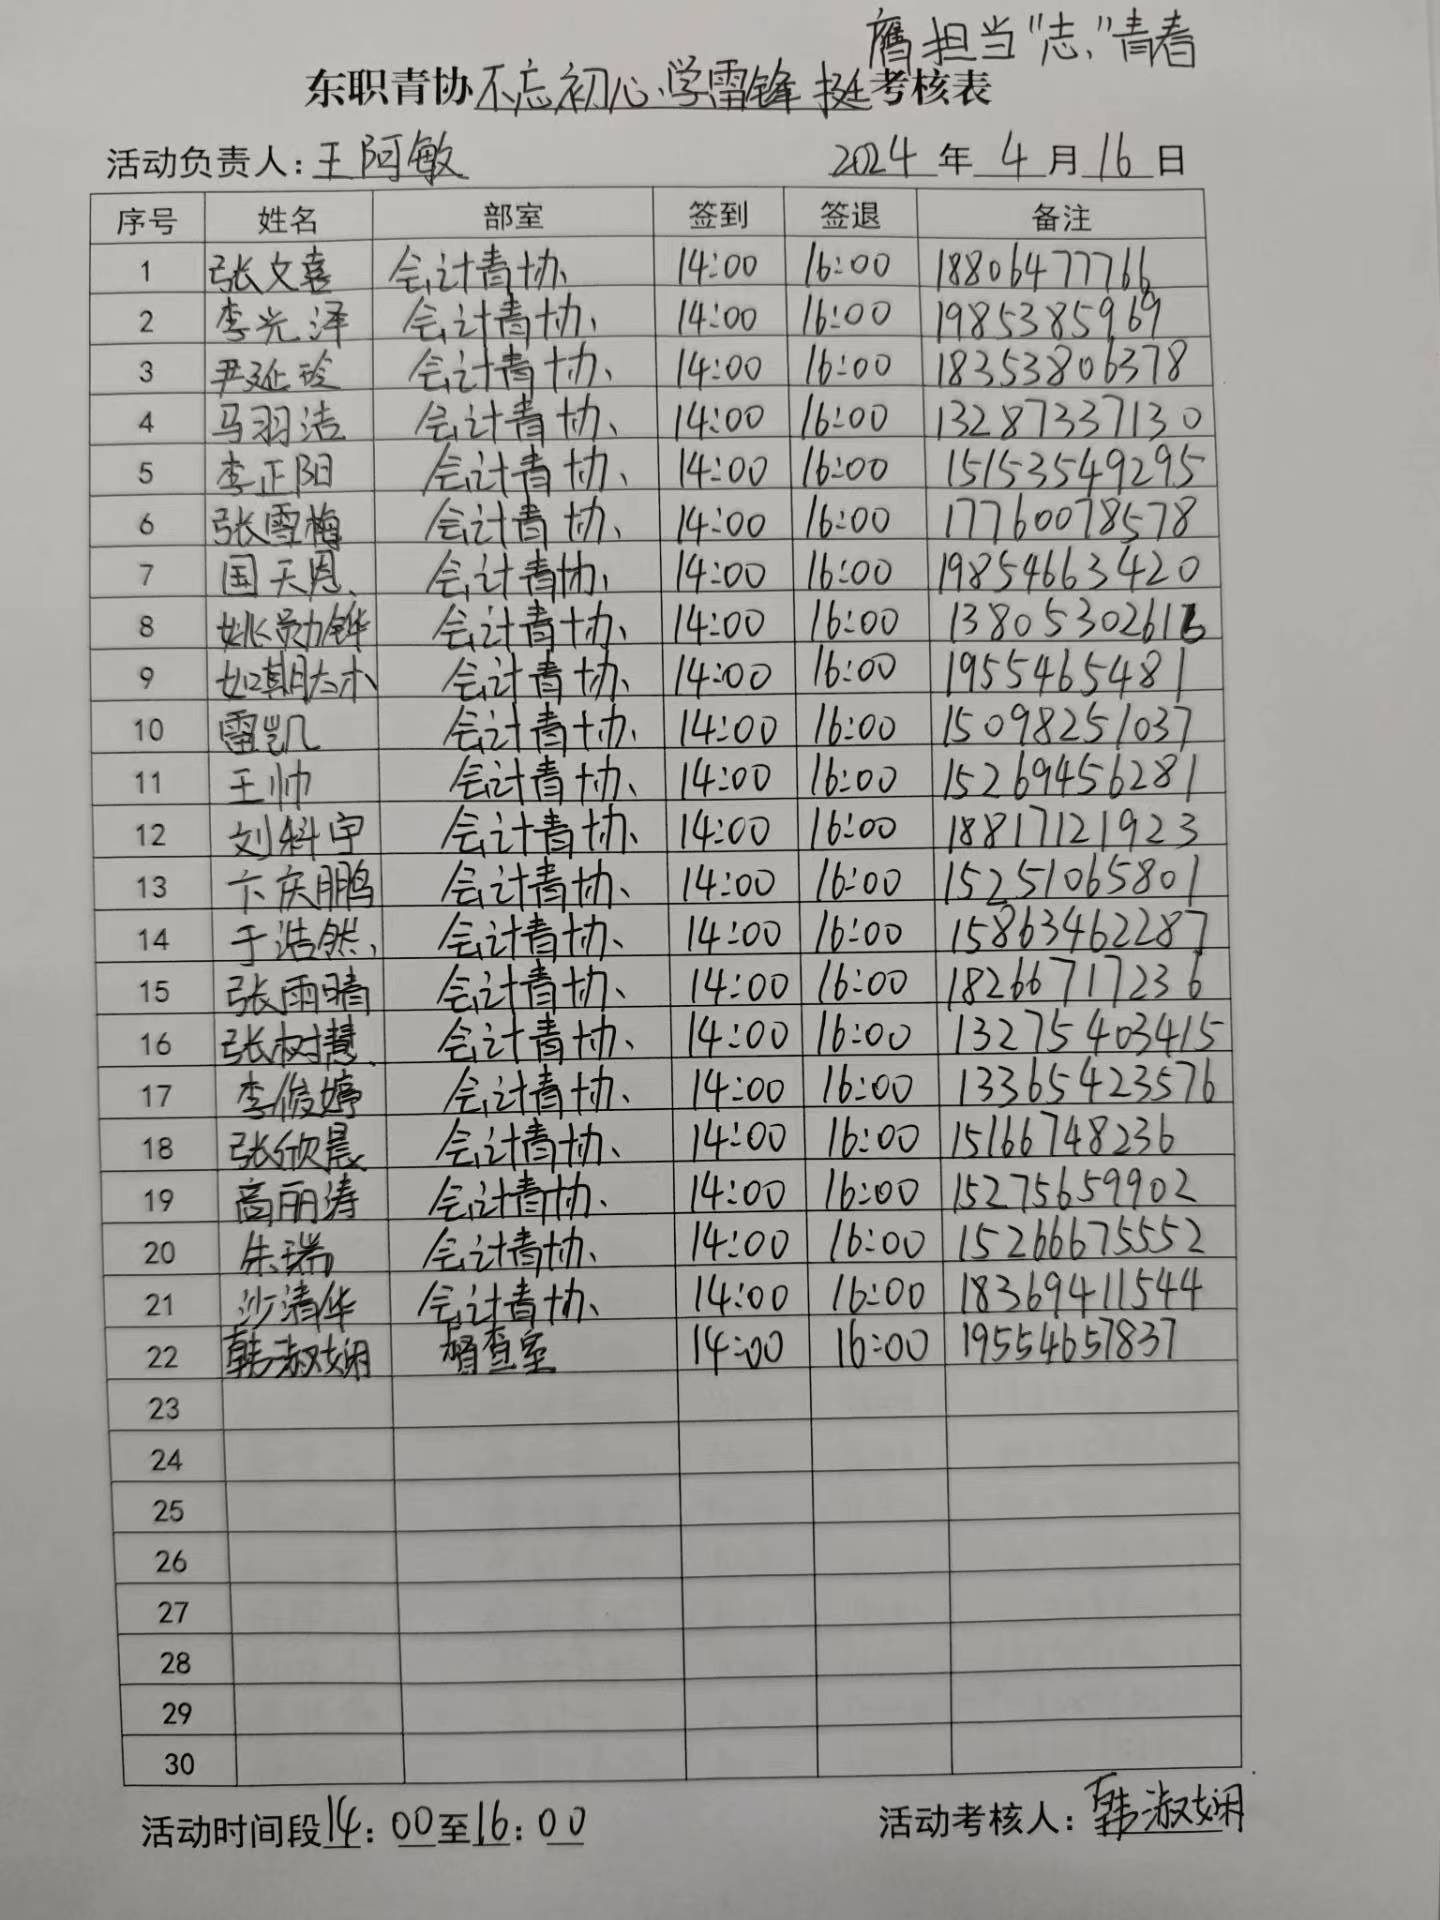 膺担当“志”青春
东职青协不忘初心、学雷锋 挺考核表
活动负责人:王阿敏 2024年4月16日
序号 姓名 部室 签到 签退 备注
1 张文喜 会计青协 14:00 16:00 18806477766
2 李光泽 会计青协 14:00 16:00 19853885969
3 尹延玲 会计青协 14:00 16:00 18353806378
4 马羽洁 会计青协 14:00 16:00 13287337130
5 李正阳 会计青协 14:00 16:00 15153549295
6 张雪梅 会计青协 14:00 16:00 17760078578
7 国天恩 会计青协 14:00 16:00 19854663420
8 姚勋铧 会计青协 14:00 16:00
9 会计青协 14:00 16:00 1955465481
10 雷凯 会计青协 14:00 16:00 15098251037
11 王帅 会计青协 14:00 16:00 15269456281
12 刘科宇 会计青协 14:00 16:00 18817121923
13 卞庆鹏 会计青协 14:00 16:00 15251065801
14 于浩然 会计青协 14:00 16:00 15863462287
15 张雨晴 会计青协 14:00 16:00 18266717236
16 张树慧 会计青协 14:00 16:00 13275403415
17 李俊婷 会计青协 14:00 16:00 13365423576
18 张欣晨 会计青协 14:00 16:00 15166748236
19 高丽涛 会计青协 14:00 16:00 15275659902
20 朱瑞 会计青协 14:00 16:00 15266675552
21 沙清华 会计青协 14:00 16:00 18369411544
22 韩淑娴 督查室 14:00 16:00 19554657837
23
24
25
26
27
28
29
30
活动时间段14:00至16:00 活动考核人:韩淑娴